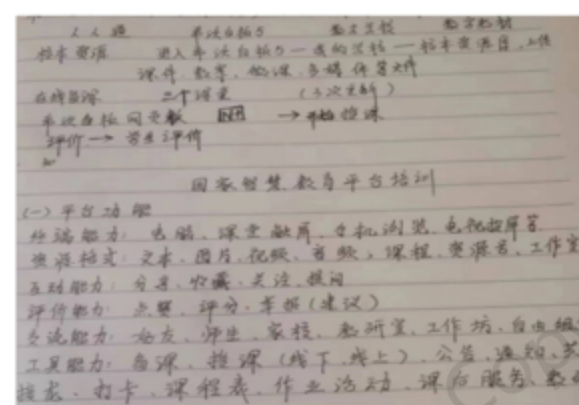 人人通 希沃白板5
校本资源 进入希沃白板5一我的学校一校本资源库,上传
课件、教案、微课、多媒体等文件
三个课堂 (三次更新)
希沃白板 →开始授课
评价→学生评价
国家智慧教育平台培训
(一)平台功能
终端能力:电脑、课堂触屏、手机浏览、电视投屏等
资源格式:文本、图片、视频、音频、课程、资源包、工作室
互动能力:分享、收藏、关注、提问
评价能力:点赞、评分、举报(建议)
交流能力:好友、师生、家校、教研室、工作坊、自由组
工具能力:备课、授课(线下、线上)、公告、通知、
接龙、打卡、课程表、作业活动、课后服务、